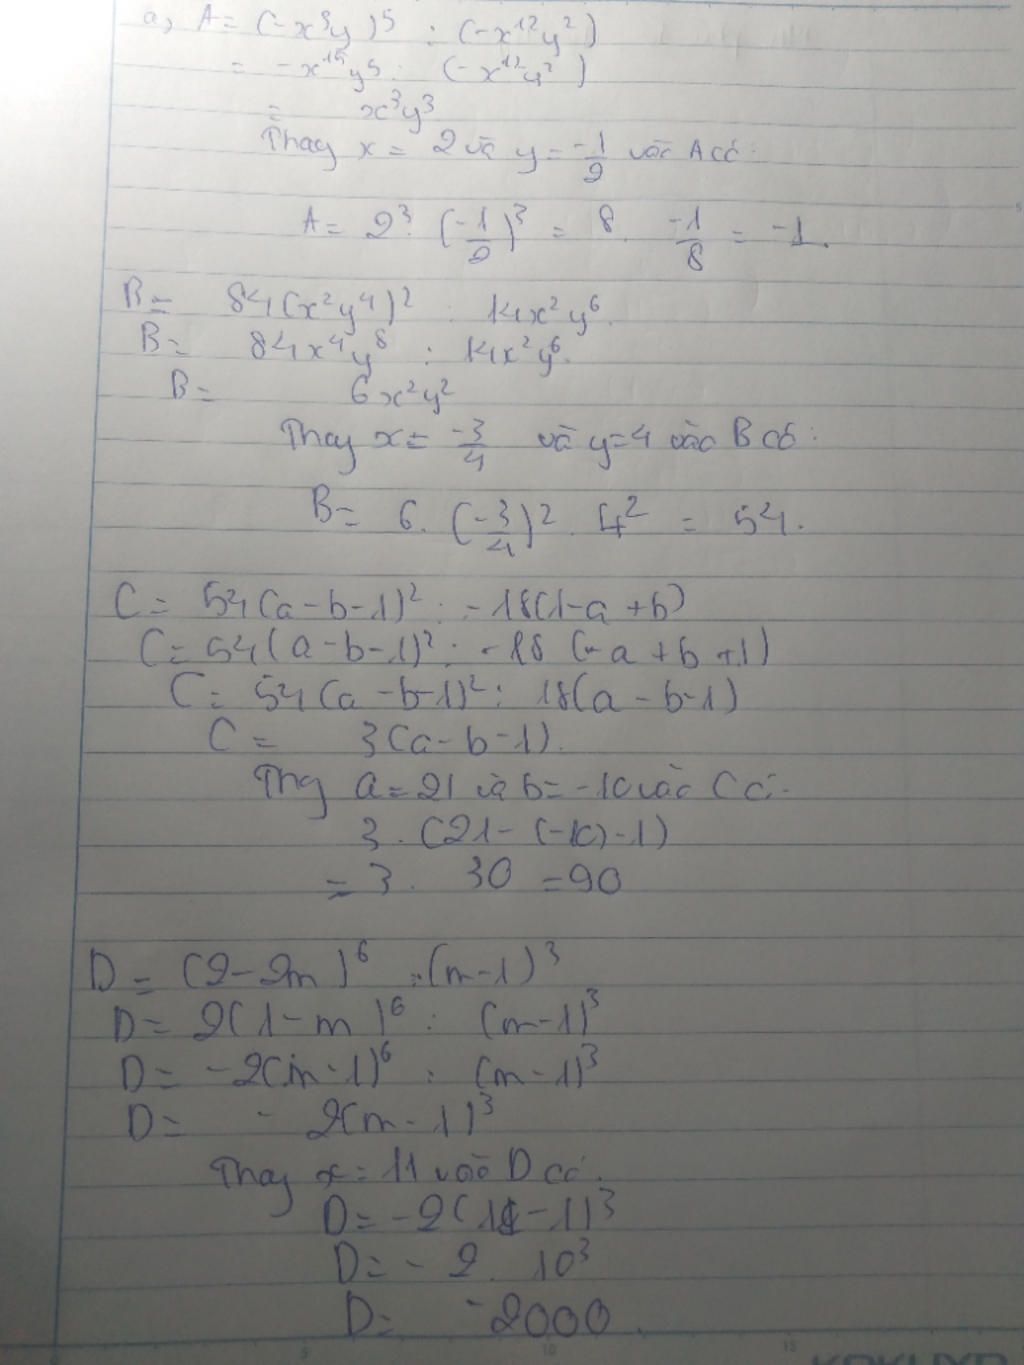 a, A = (-x³y)⁵ : (-x¹²y²)
= -x¹⁵y⁵ : (-x¹²y²)
= x³y³
Thay x = 2 và y = -1/2 vào A có:
A = 2³. (-1/2)³ = 8. -1/8 = -1.
B = 84(x²y⁴)² : 14x²y⁶.
B = 84x⁴y⁸ : 14x²y⁶.
B = 6x²y²
Thay x = -3/4 và y = 4 vào B có:
B = 6. (-3/4)². 4² = 54.
C = 54(a-b-1)² : -18(1-a+b)
C = 54(a-b-1)² : -18(-a+b+1)
C = 54(a-b-1)² : 18(a-b-1)
C = 3(a-b-1).
Thay a = 21 và b = -10 vào C có:
3. (21-(-10)-1)
= 3. 30 = 90
D = (2-2m)⁶ : (m-1)³
D = 2(1-m)⁶ : (m-1)³
D = -2(m-1)⁶ : (m-1)³
D = -2(m-1)³
Thay x = 11 vào D có.
D = -2(11-1)³
D = -2. 10³
D = -2000.
5 10 15